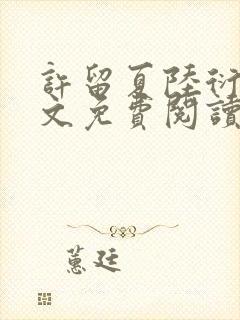 許留夏陸衍
文免費閱讀
蕙廷